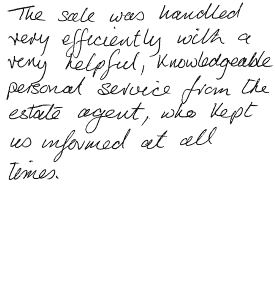 The sale was handled
very efficiently with a
very helpful, knowledgeable
personal service from the
estate agent, who kept
us informed at all
times.